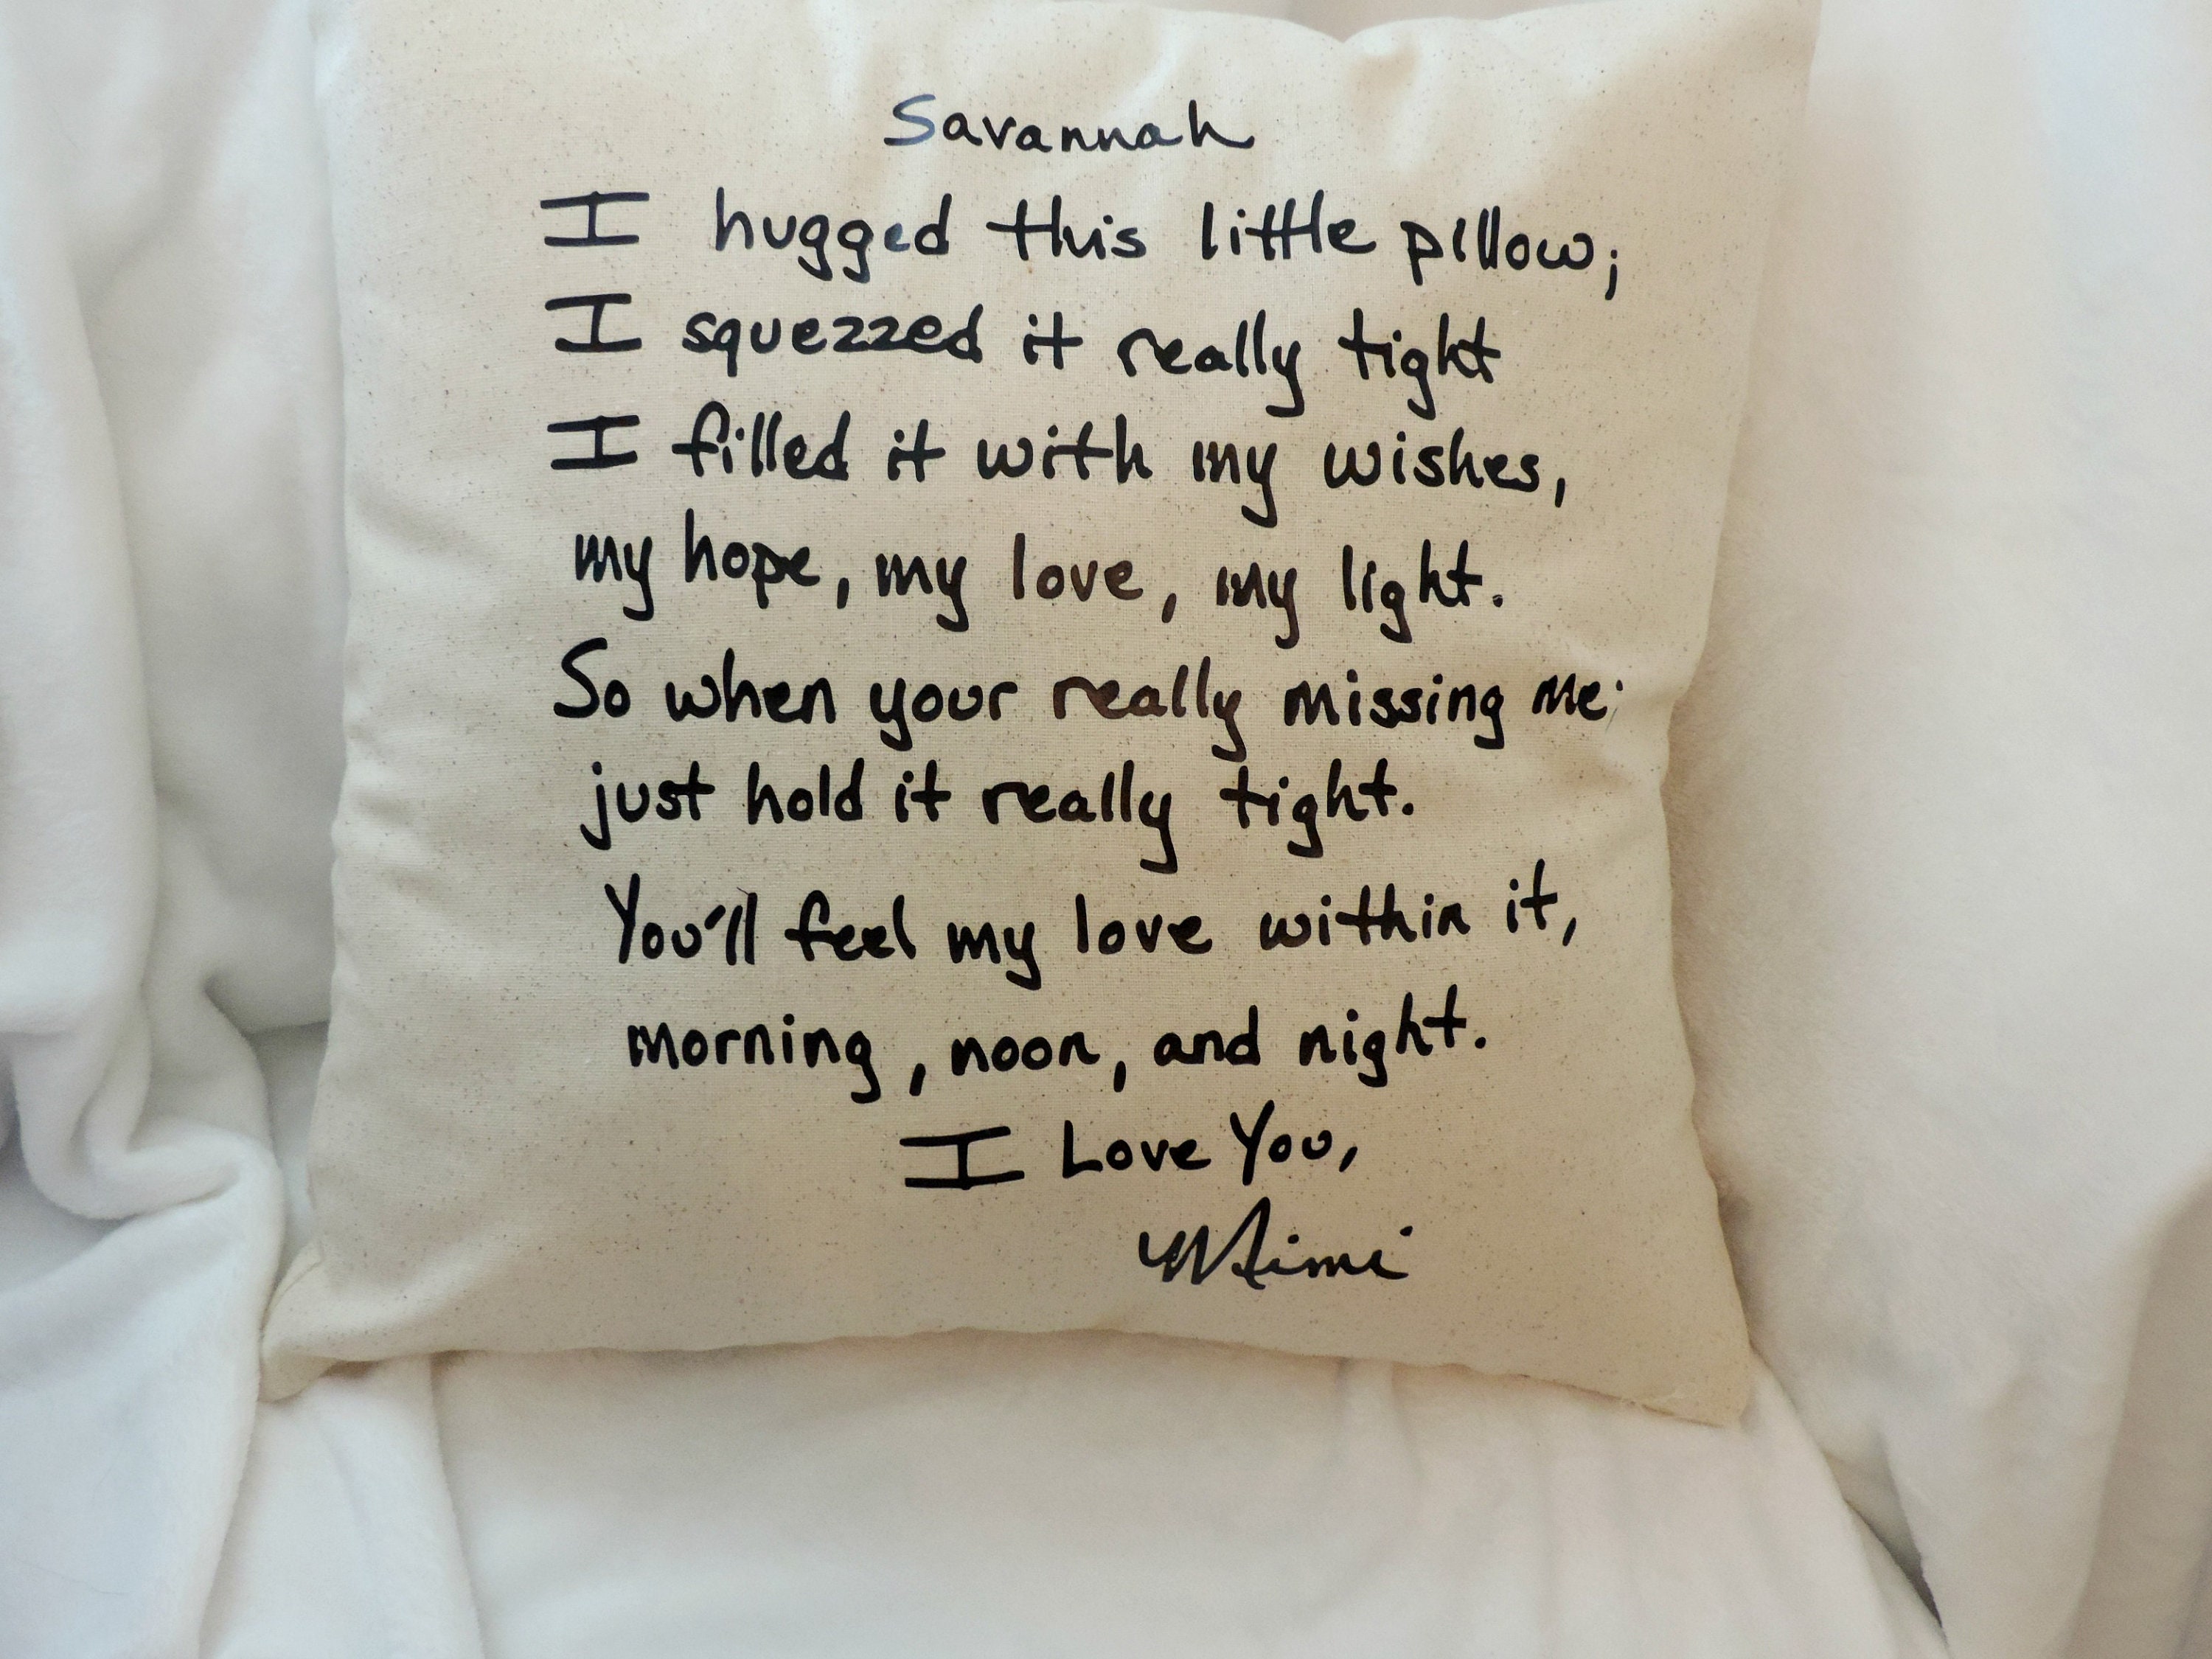 Savannah
I hugged this little pillow;
I squezzed it really tight
I filled it with my wishes,
my hope, my love, my light.
So when your really missing me;
just hold it really tight.
You'll feel my love within it,
morning, noon, and night.
I Love You,
Mimi